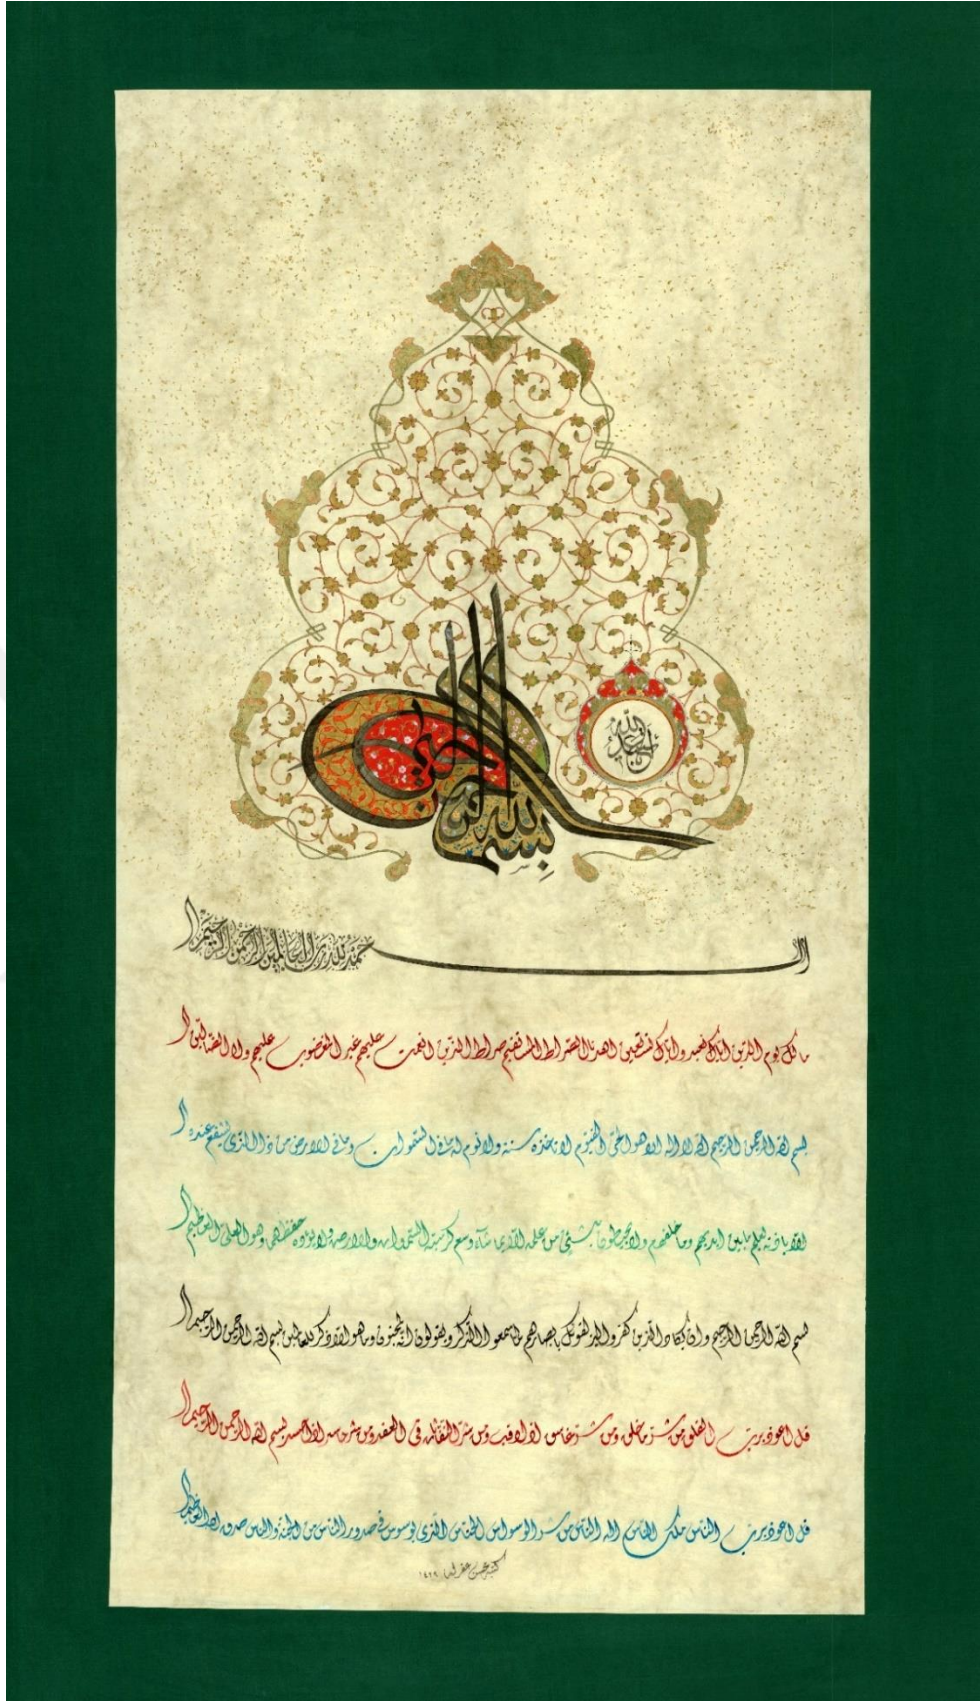 بسم الله الرحمن الرحيم
الحمد لله رب العالمين الرحمن الرحيم
مالك يوم الدين اياك نعبد واياك نستعين اهدنا الصراط المستقيم صراط الذين انعمت عليهم غير المغضوب عليهم ولا الضالين
بسم الله الرحمن الرحيم الله لا اله الا هو الحي القيوم لا تاخذه سنة ولا نوم له ما في السموات وما في الارض من ذا الذي يشفع عنده
الا باذنه يعلم ما بين ايديهم وما خلفهم ولا يحيطون بشيء من علمه الا بما شاء وسع كرسيه السموات والارض ولا يؤده حفظهما وهو العلي العظيم
بسم الله الرحمن الرحيم وان يكاد الذين كفروا ليزلقونك بابصارهم لما سمعوا الذكر ويقولون انه لمجنون وما هو الا ذكر للعالمين بسم الله الرحمن الرحيم
قل اعوذ برب الفلق من شر ما خلق ومن شر غاسق اذا وقب ومن شر النفاثات في العقد ومن شر حاسد اذا حسد بسم الله الرحمن الرحيم
قل اعوذ برب الناس ملك الناس اله الناس من شر الوسواس الخناس الذي يوسوس في صدور الناس من الجنة والناس صدق الله العظيم
كتبه ١٤٢٩